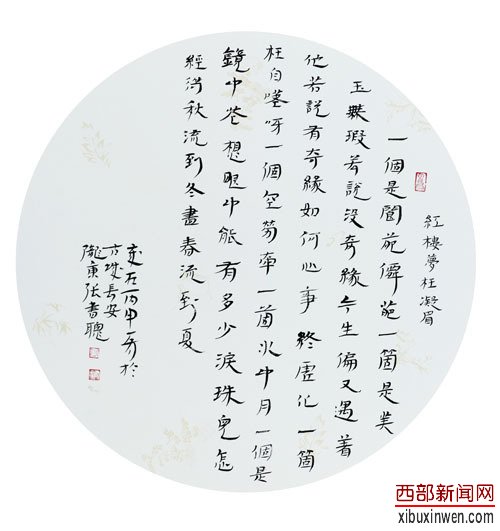 紅樓夢枉凝眉
一個是閬苑僊葩一箇是美
玉無瑕若說沒奇緣今生偏又遇着
他若說有奇緣如何心事終虛化一箇
枉自嗟呀一個空勞牽一箇水中月一個是
鏡中花想眼中能有多少淚珠兒怎
經得秋流到冬盡春流到夏
歲在丙申 於
古城長安
隴東張書聰
西部新闻网
xibuxinwen.com